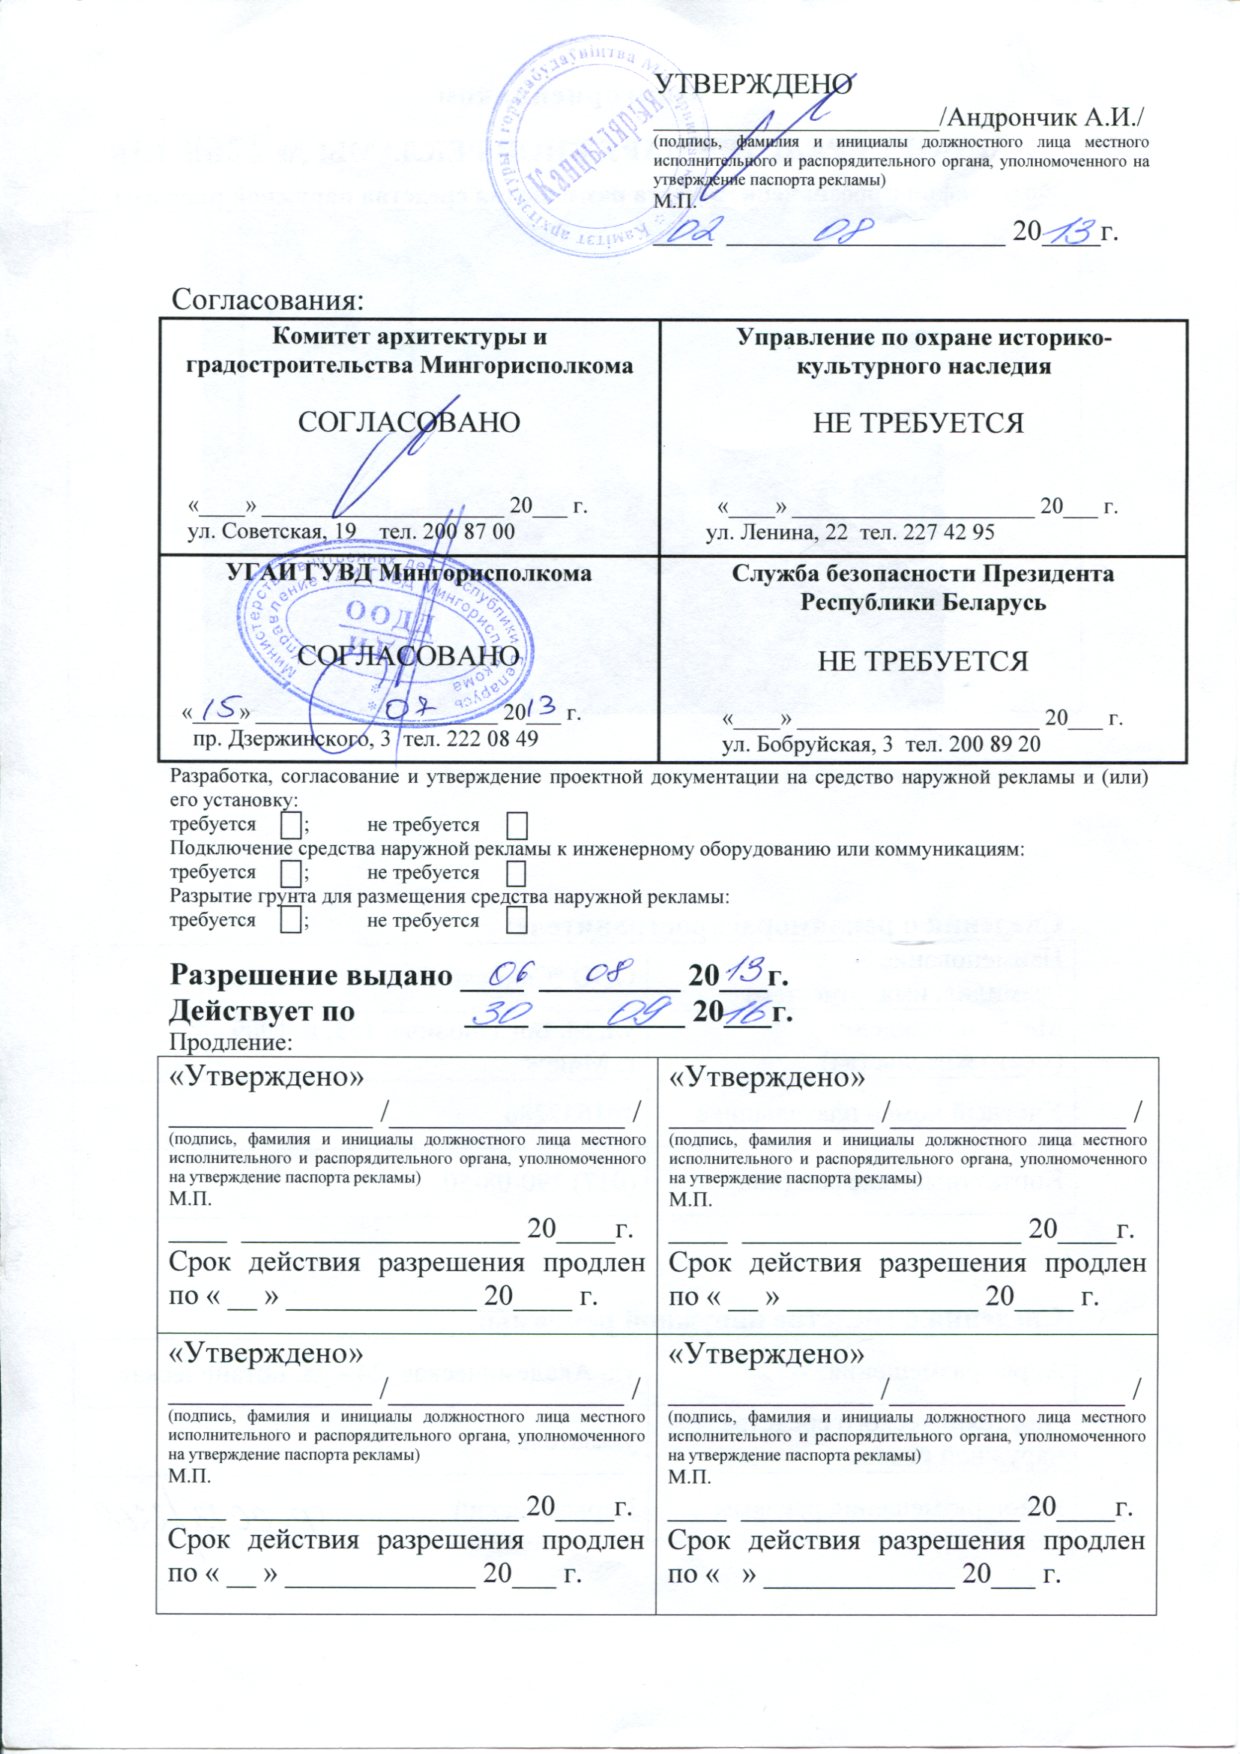 УТВЕРЖДЕНО
____________________/Андрончик А.И./
(подпись, фамилия и инициалы должностного лица местного
исполнительного и распорядительного органа, уполномоченного на
утверждение паспорта рекламы)
М.П.
02 08 2013г.
Камітэт архітэктуры і горадабудаўніцтва
Канцылярыя
Согласования:
Комитет архитектуры и
градостроительства Мингорисполкома
СОГЛАСОВАНО
«____» ____________________ 20___ г.
ул. Советская, 19 тел. 200 87 00
Управление по охране историко-
культурного наследия
НЕ ТРЕБУЕТСЯ
«____» ____________________ 20___ г.
ул. Ленина, 22 тел. 227 42 95
УГАИ ГУВД Мингорисполкома
СОГЛАСОВАНО
«15» 07 2013 г.
пр. Дзержинского, 3 тел. 222 08 49
Министерство внутренних дел Республики Беларусь
Управление ГАИ ГУВД Мингорисполкома
ООДД
Служба безопасности Президента
Республики Беларусь
НЕ ТРЕБУЕТСЯ
«____» ____________________ 20___ г.
ул. Бобруйская, 3 тел. 200 89 20
Разработка, согласование и утверждение проектной документации на средство наружной рекламы и (или)
его установку:
требуется ; не требуется
Подключение средства наружной рекламы к инженерному оборудованию или коммуникациям:
требуется ; не требуется
Разрытие грунта для размещения средства наружной рекламы:
требуется ; не требуется
Разрешение выдано 06 08 2013г.
Действует по 30 09 2016г.
Продление:
«Утверждено»
______________ /________________ /
(подпись, фамилия и инициалы должностного лица местного
исполнительного и распорядительного органа, уполномоченного
на утверждение паспорта рекламы)
М.П.
____ ___________________ 20____г.
Срок действия разрешения продлен
по « __ » _____________ 20____ г.
«Утверждено»
______________ /________________ /
(подпись, фамилия и инициалы должностного лица местного
исполнительного и распорядительного органа, уполномоченного
на утверждение паспорта рекламы)
М.П.
____ ___________________ 20____г.
Срок действия разрешения продлен
по « __ » _____________ 20____ г.
«Утверждено»
______________ /________________ /
(подпись, фамилия и инициалы должностного лица местного
исполнительного и распорядительного органа, уполномоченного
на утверждение паспорта рекламы)
М.П.
____ ___________________ 20____г.
Срок действия разрешения продлен
по « __ » _____________ 20___ г.
«Утверждено»
______________ /________________ /
(подпись, фамилия и инициалы должностного лица местного
исполнительного и распорядительного органа, уполномоченного
на утверждение паспорта рекламы)
М.П.
____ ___________________ 20____г.
Срок действия разрешения продлен
по « » _____________ 20___ г.